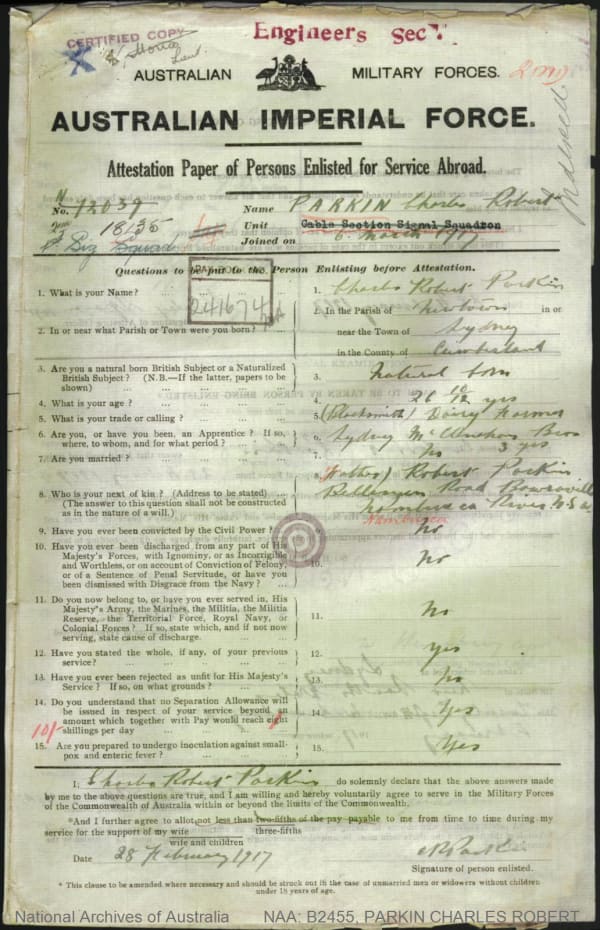 CERTIFIED COPY
Engineers Sec
Lieut.
AUSTRALIAN MILITARY FORCES.
2nd
AUSTRALIAN IMPERIAL FORCE.
Attestation Paper of Persons Enlisted for Service Abroad.
N
No. 12039 Name PARKIN Charles Robert
18135 Unit Cable Section Signal Squadron
Sig Squad Joined on 6. March 1917
Questions to be put to the Person Enlisting before Attestation.
241674
1. What is your Name? ... 1. Charles Robert Parkin
2. In or near what Parish or Town were you born? ... 2. In the Parish of Newtown in or
near the Town of Sydney
in the County of Cumberland
3. Are you a natural born British Subject or a Naturalized
British Subject? (N.B.—If the latter, papers to be
shown) ... 3. natural born
4. What is your age? ... 4. 26 10/12 yrs
5. What is your trade or calling? ... 5. (Blacksmith) Dairy Farmer
6. Are you, or have you been, an Apprentice? If so,
where, to whom, and for what period? ... 6. Sydney Bros
3 yrs
7. Are you married? ... 7. No
8. Who is your next of kin? (Address to be stated) ... 8. (Father) Robert Parkin
(The answer to this question shall not be construed
as in the nature of a will.)
Bellingen Road Bowraville
Nambucca River N.S.W.
Nambucca
9. Have you ever been convicted by the Civil Power? ... 9. No
10. Have you ever been discharged from any part of His
Majesty's Forces, with Ignominy, or as Incorrigible
and Worthless, or on account of Conviction of Felony,
or of a Sentence of Penal Servitude, or have you
been dismissed with Disgrace from the Navy? ... 10. No
11. Do you now belong to, or have you ever served in, His
Majesty's Army, the Marines, the Militia, the Militia
Reserve, the Territorial Force, Royal Navy, or
Colonial Forces? If so, state which, and if not now
serving, state cause of discharge. ... 11. No
12. Have you stated the whole, if any, of your previous
service? ... 12. yes
13. Have you ever been rejected as unfit for His Majesty's
Service? If so, on what grounds? ... 13. No
14. Do you understand that no Separation Allowance will
be issued in respect of your service beyond an
amount which together with Pay would reach eight
10/- shillings per day ... 14. Yes
15. Are you prepared to undergo inoculation against small-
pox and enteric fever? ... 15. Yes
I, Charles Robert Parkin do solemnly declare that the above answers made
by me to the above questions are true, and I am willing and hereby voluntarily agree to serve in the Military Forces
of the Commonwealth of Australia within or beyond the limits of the Commonwealth.
*And I further agree to allot not less than two-fifths of the pay payable to me from time to time during my
three-fifths
service for the support of my wife
wife and children
Date 28 February 1917 C R Parkin
Signature of person enlisted.
* This clause to be amended where necessary and should be struck out in the case of unmarried men or widowers without children
under 18 years of age.
National Archives of Australia NAA: B2455, PARKIN CHARLES ROBERT